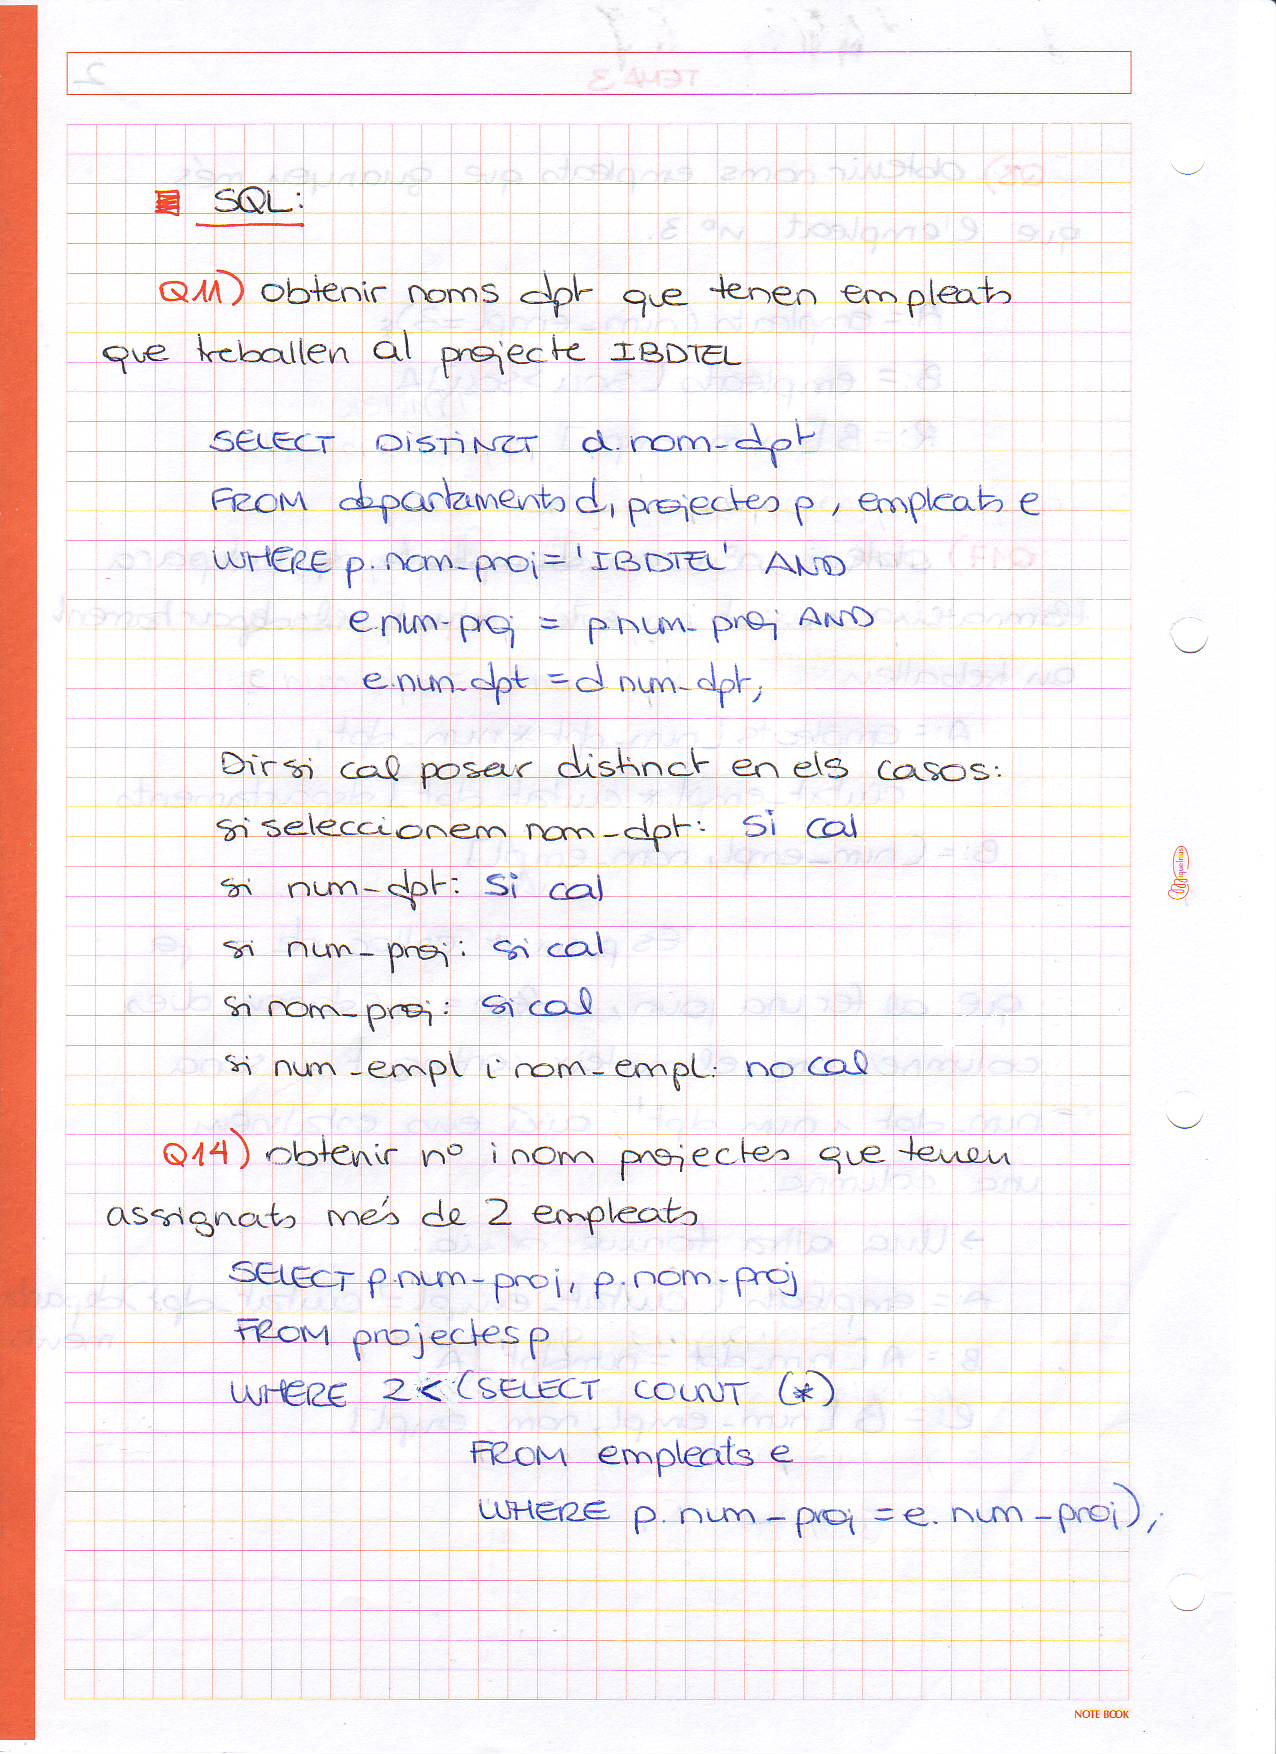 SQL:
Q11) obtenir noms dpt que tenen empleats
que treballen al projecte IBDTEL
SELECT DISTINCT d.nom-dpt
FROM departaments d, projectes p, empleats e
WHERE p.nom-proj = 'IBDTEL' AND
e.num-proj = p.num-proj AND
e.num-dpt = d num-dpt;
Dir si cal posar distinct en els casos:
si seleccionem nom-dpt: si cal
si num-dpt: si cal
si num-proj: si cal
si nom-proj: si cal
si num-empl i nom-empl: no cal
Q14) obtenir nº i nom projectes que tenen
assignats més de 2 empleats
SELECT p.num-proj, p.nom-proj
FROM projectes p
WHERE 2 < (SELECT COUNT (*)
FROM empleats e
WHERE p.num-proj = e.num-proj);
NOTE BOOK